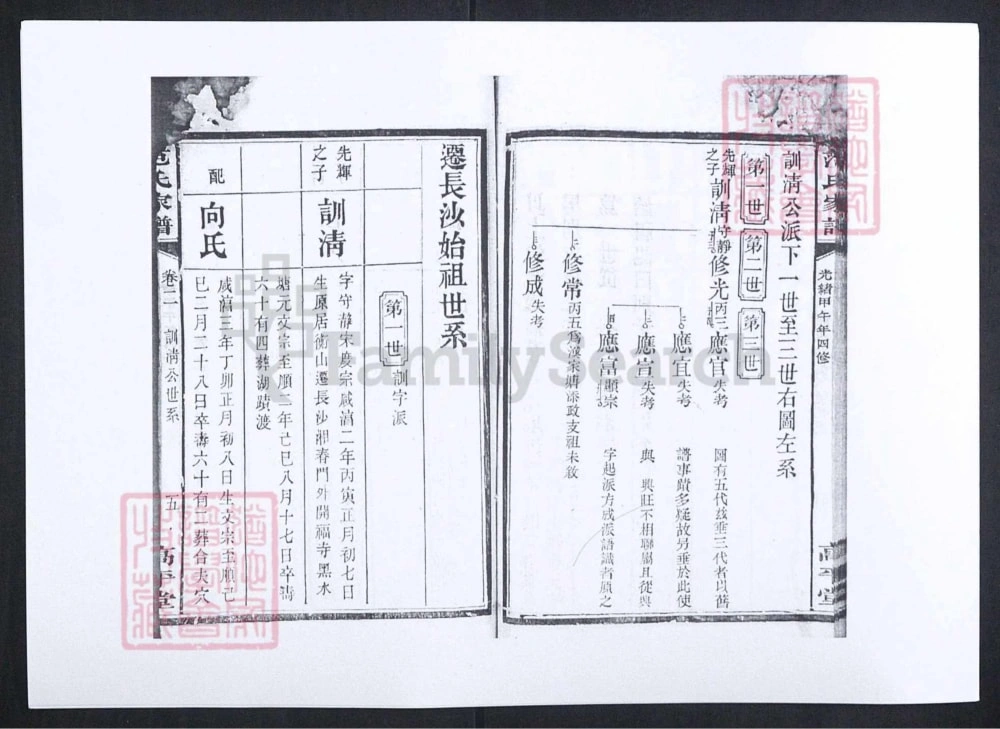 氏家譜
光緒甲午年四修
高平堂
訓清公派下一世至三世右圖左系
第一世
第二世
第三世
先輝之子
訓清 守靜
修光 丙三
應官 失考
應宜 失考
應宣 失考
應富 顯宗
圖有五代茲垂三代者以舊
譜事蹟多疑故另垂於此使
與 興旺不相聯屬且從與
字起派方成派語識者願之
修常 丙五為漢家塘添政支祖未敘
修成 失考
遷長沙始祖世系
第一世 訓字派
先輝之子
訓清
字守靜宋度宗咸湻二年丙寅正月初七日
生原居衡山遷長沙湘春門外開福寺黑水
塘元文宗至順二年己巳八月十七日卒壽
六十有四葬湖蹟渡
配
向氏
咸湻三年丁卯正月初八日生文宗至順己
巳二月二十八日卒壽六十有二葬合夫穴
氏家譜
卷二
訓清公世系
五
高平堂
FamilySearch